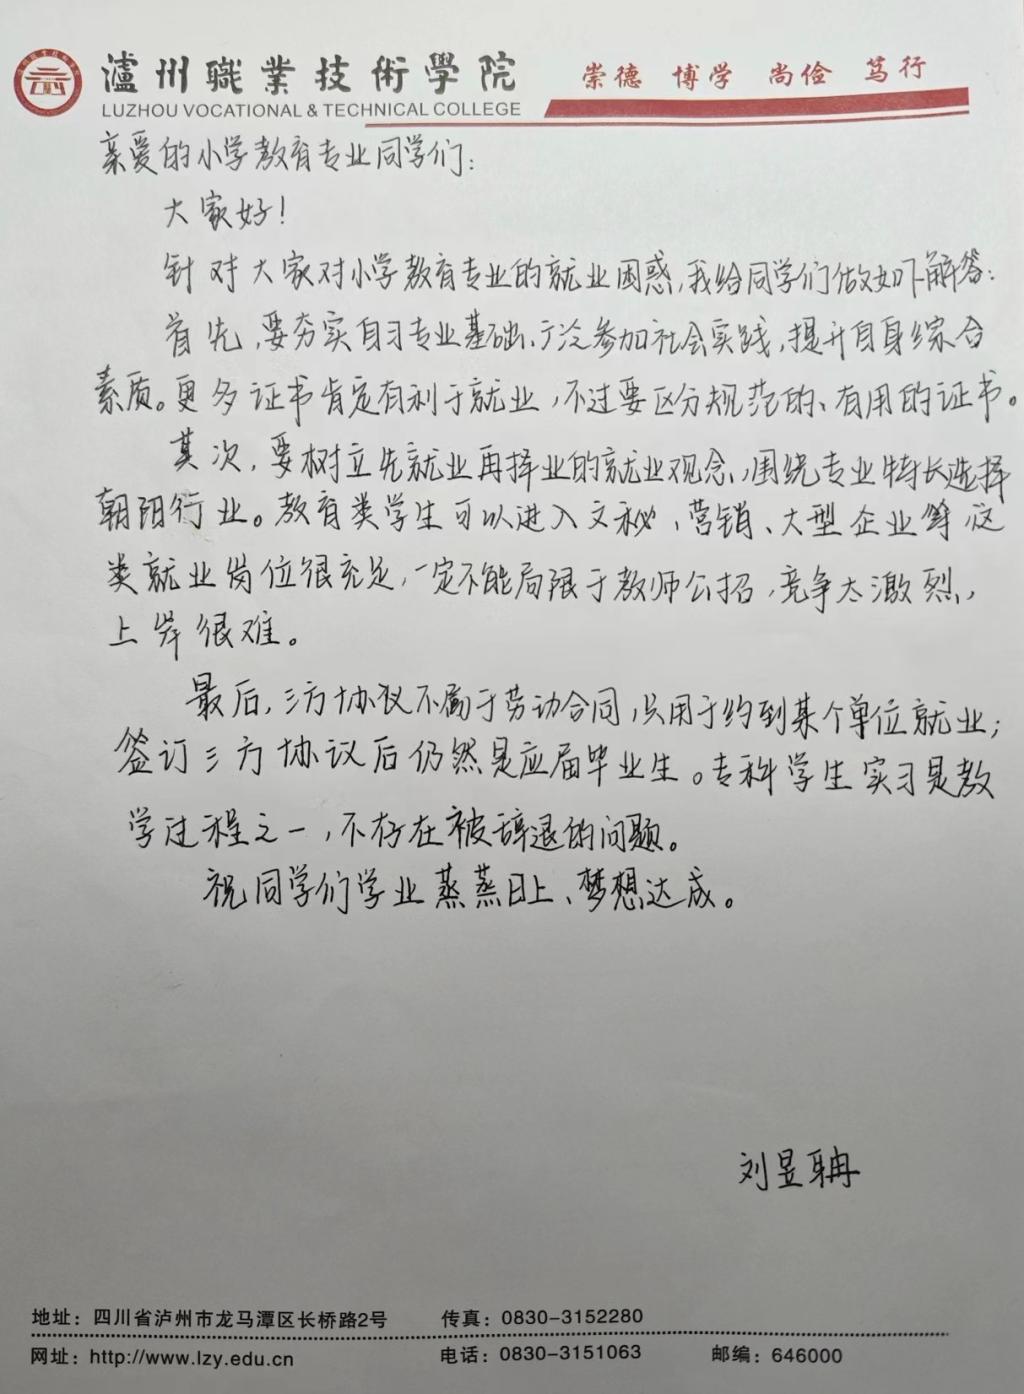 瀘州職業技術學院
LUZHOU VOCATIONAL & TECHNICAL COLLEGE
崇德 博学 尚俭 笃行
亲爱的小学教育专业同学们:
大家好!
针对大家对小学教育专业的就业困惑,我给同学们做如下解答:
首先,要夯实自习专业基础、广泛参加社会实践,提升自身综合
素质。更多证书肯定有利于就业,不过要区分规范的、有用的证书。
其次,要树立先就业再择业的就业观念,围绕专业特长选择
朝阳行业。教育类学生可以进入文秘,营销、大型企业等,这
类就业岗位很充足,一定不能局限于教师公招,竞争太激烈,
上岸很难。
最后,三方协议不属于劳动合同,只用于约到某个单位就业;
签订三方协议后仍然是应届毕业生。专科学生实习是教
学过程之一,不存在被辞退的问题。
祝同学们学业蒸蒸日上、梦想达成。
刘昱冉
地址: 四川省泸州市龙马潭区长桥路2号 传真: 0830-3152280
网址: http://www.lzy.edu.cn 电话: 0830-3151063 邮编: 646000